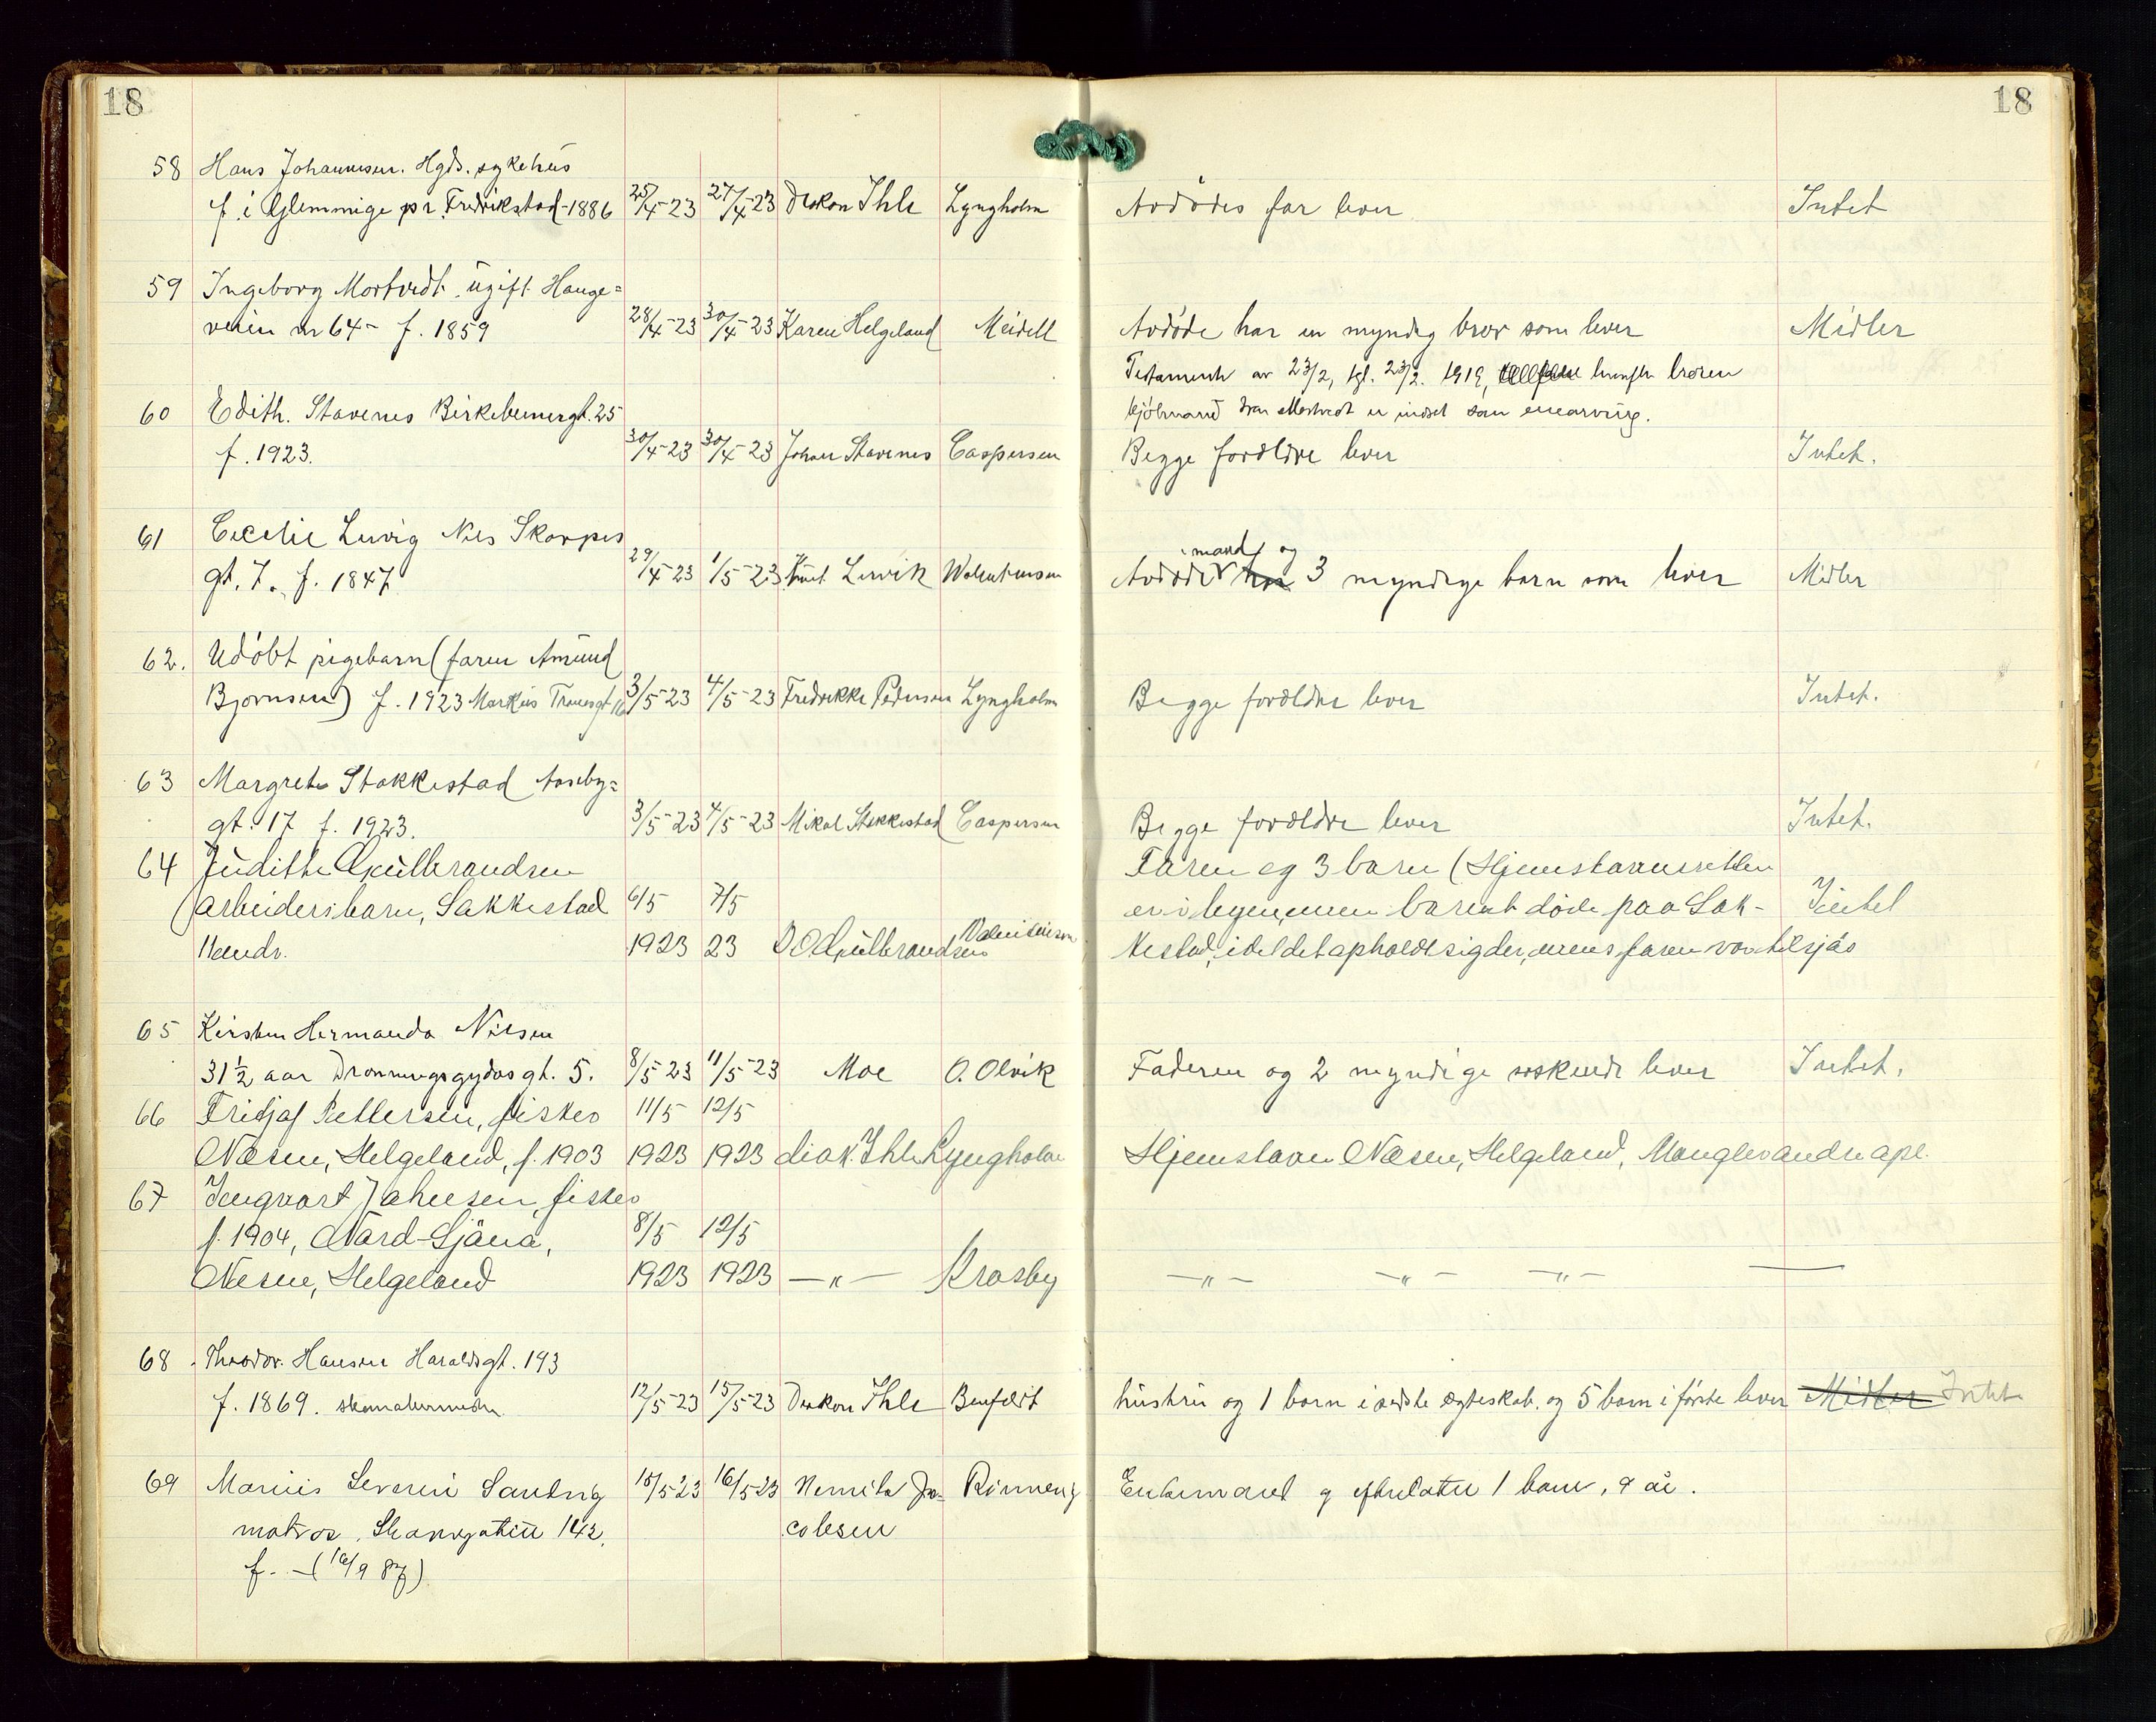 18
18
58 Hans Johannesen. Hgds. sykehus
f. i Glemmige pr. Fredrikstad - 1886 25/4-23 27/4-23 Diakon Ihle Lyngholm Avdødes far lever Intet
59 Ingeborg Mortvedt. ugift. Hauge=
veien nr 64 - f. 1859 28/4-23 30/4-23 Karen Helgeland Meidell Avdøde har en myndig bror som lever Midler
Testament av 23/2, tgl. 23/2. 1919, broren
er indsat som enearving.
60 Edith. Stavenes Birkebeinergt. 25
f. 1923. 30/4-23 30/4-23 Johan Stavenes Caspersen Begge forældre lever Intet.
61 Cecelie Lervig Nils Skorpes
gt. 7. f. 1847 29/4-23 1/5-23 Knut. Lervik Walentinsen Avdøde har 3 myndige barn som lever Midler
mand og
62. Udøbt pigebarn (faren Amund
Bjørnsen) f. 1923 Markus Tranesgt 16 3/5-23 4/5-23 Fredrikke Pedersen Lyngholm Begge forældre lever Intet.
63 Margrete Stakkestad Aaseby=
gt. 17 f. 1923. 3/5-23 4/5-23 Mikal Stakkestad Caspersen Begge forældre lever Intet.
64 Judithe Gulbrandsen Faren og 3 barn (Hjemstavnsretten
(arbeidersbarn, Sakkestad 6/5 7/5 er i byen, men barnet døde paa Sak- Intet
1923 23 O Gulbrandsen Valentinsen kestad, idet det opholdt sig der, mens faren var tilsjøs
65 Kirsten Hermanda Nilsen
31½ aar Dronningsgydasgt. 5. 8/5 23 11/5-23 Moe O. Olvik Faderen og 2 myndige søskende lever Intet.
66 Fridjof Pettersen, fisker 11/5 12/5
Næsne, Helgeland, f. 1903 1923 1923 diak. Ihle Lyngholm Hjemstavn Næsne, Helgeland, Mangler andre opl.
67 Ingvart Johnsen, fisker
f. 1904, Nord-Sjåna, 8/5 12/5
Nesne, Helgeland 1923 1923 —"— Krosby —"— —"— —"— ——
68 Theodor. Hansen Haraldsgt. 193
f. 1869. 12/5-23 15/5-23 Diakon Ihle Benfeldt hustru og 1 barn i sidste ægteskab. og 5 barn i første lever Midler Intet
69 Marius Severin Sandvig 15/5 23 16/5-23 Ja- Rinneng Enkemand og efterlater 1 barn, 9 år.
matros. Skaregaten 142, cobsen
f. - (16/9 87)